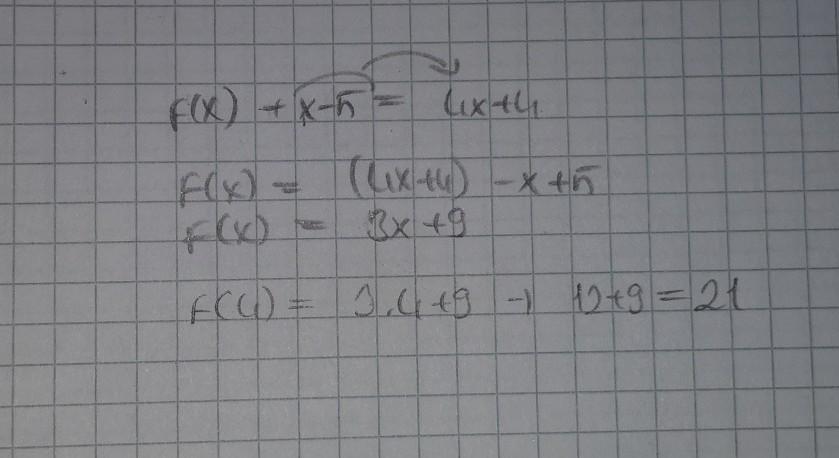 F(x) + x-5 = 4x+4
F(x) = (4x+4) -x+5
F(x) = 3x+9
F(4) = 3.4+9 → 12+9=21